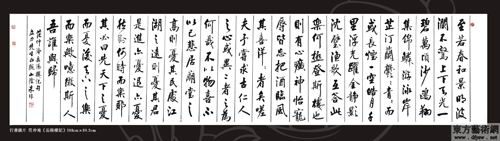 至若春和景明波
瀾不驚上下天光一
碧萬頃沙鷗翔
集錦鱗游泳岸
芷汀蘭鬱鬱青青而
或長煙一空皓月千
里浮光耀金靜影
沈璧漁歌互答此
樂何極登斯樓也
則有心曠神怡寵
辱皆忘把酒臨風
其喜洋洋者矣嗟
夫予嘗求古仁人
之心或異二者之為
何哉不以物喜不
以己悲居廟堂之
高則憂其民處江
湖之遠則憂其君
是進亦憂退亦憂
然則何時而樂耶
其必曰先天下之憂
而憂後天下之樂
而樂歟噫微斯人
吾誰與歸
范仲淹岳陽樓記句
行書橫片 范仲淹《岳陽樓記》
東方藝術網